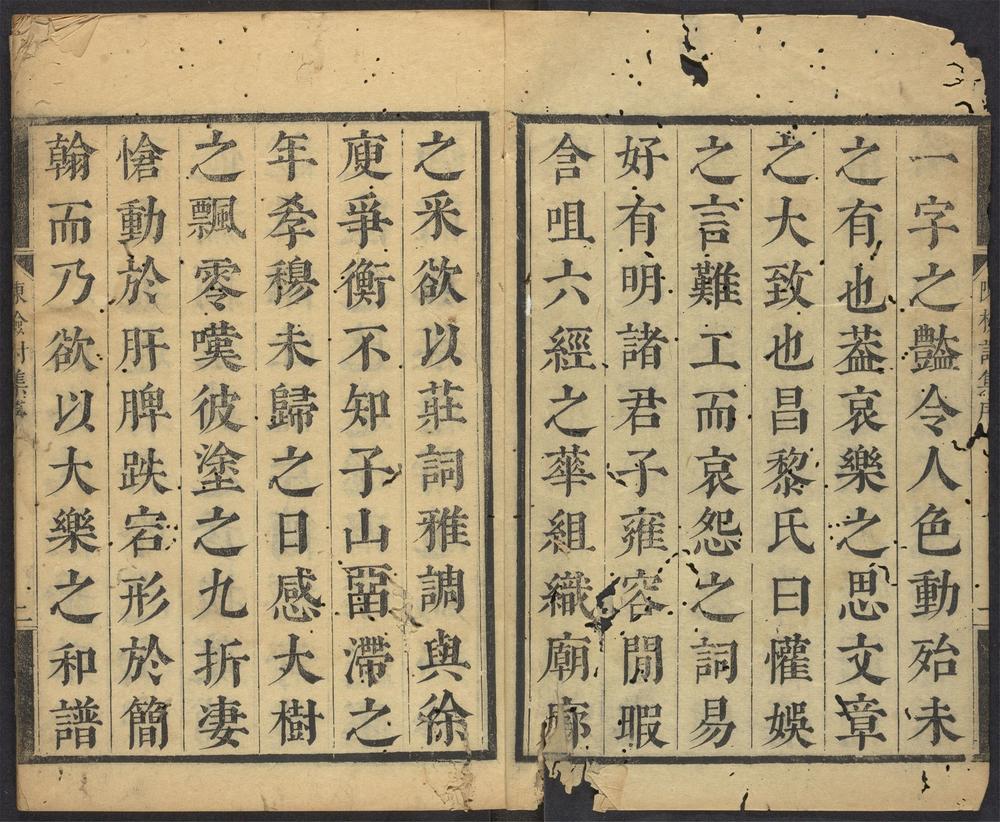 一字之豔令人色動殆未
之有也葢哀樂之思文章
之大致也昌黎氏曰懽娛
之言難工而哀怨之詞易
好有明諸君子雍容閒暇
含咀六經之華組織廟廊
之采欲以莊詞雅調與徐
庾爭衡不知子山畱滯之
年孝穆未歸之日感大樹
之飄零嘆彼塗之九折凄
愴動於肝脾跌宕形於簡
翰而乃欲以大樂之和譜
陳檢討集序
二